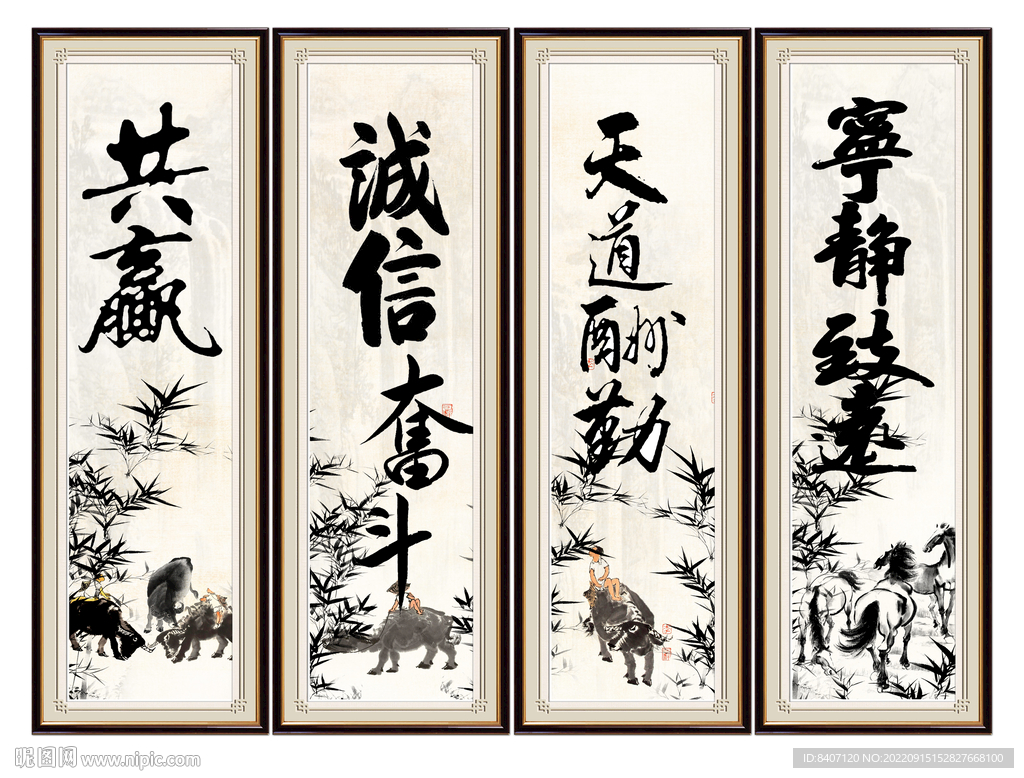 共贏
誠信奮斗
天道酬勤
寧靜致遠
昵图网 www.nipic.com
ID:8407120 NO:20220915152827668100